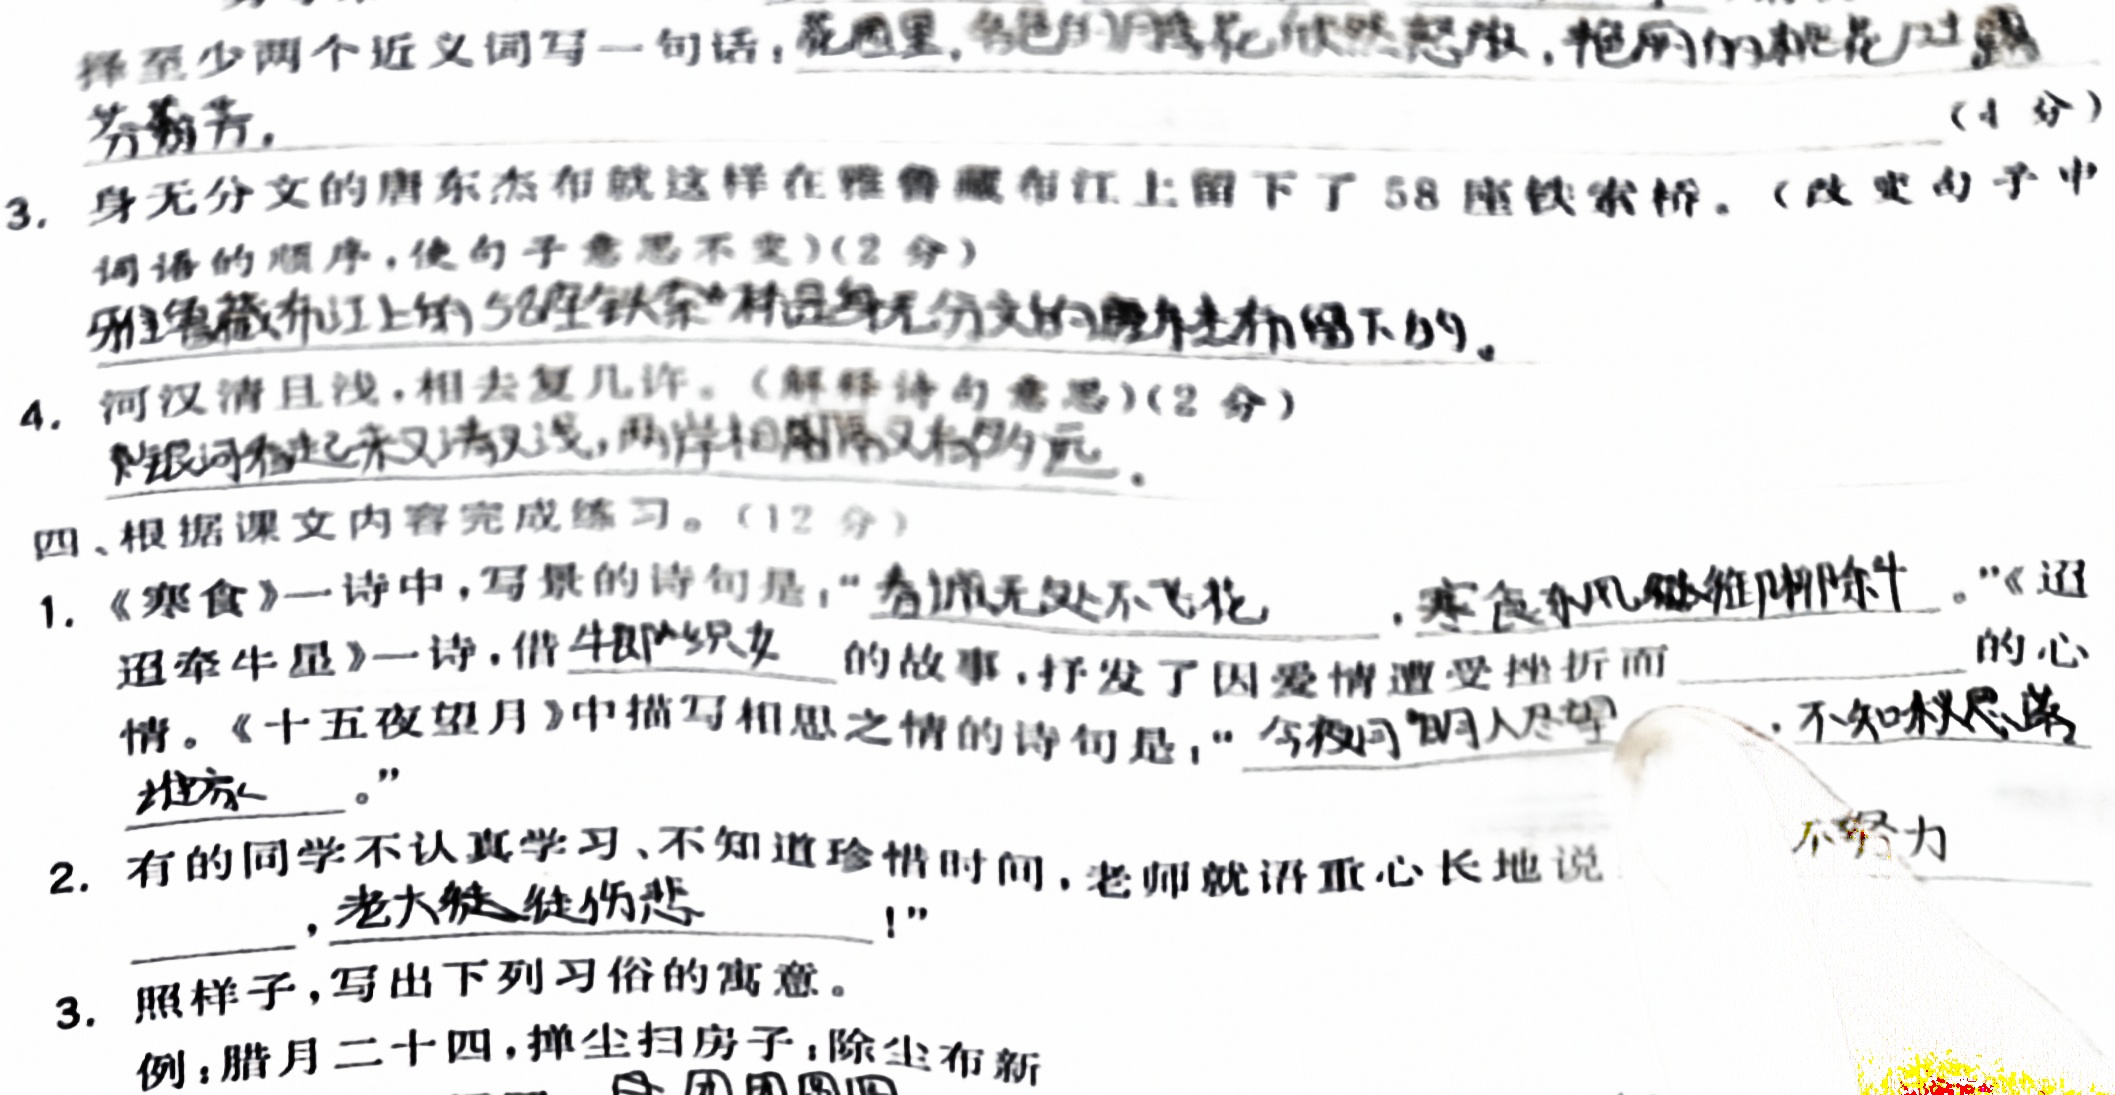 择至少两个近义词写一句话:花园里,各色的月季花欣然怒放,艳丽的桃花过
(1分)
3. 身无分文的唐东杰布就这样在雅鲁藏布江上留下了58座铁索桥。(改变句子中
词语的顺序,使句子意思不变)(2分)
雅鲁藏布江上的58座铁索桥是身无分文的唐东杰布留下的。
4. 河汉清且浅,相去复几许。(解释诗句意思)(2分)
银河看起来又清又浅,两岸相隔又有多远。
四、根据课文内容完成练习。(12分)
1. 《寒食》一诗中,写景的诗句是:“春城无处不飞花,寒食东风御柳斜。”《迢
迢牵牛星》一诗,借牛郎织女的故事,抒发了因爱情遭受挫折而 的心
情。《十五夜望月》中描写相思之情的诗句是:“今夜月明人尽望,不知秋思落
谁家。”
2. 有的同学不认真学习、不知道珍惜时间,老师就语重心长地说 不努力
,老大徒徒伤悲!”
3. 照样子,写出下列习俗的寓意。
例:腊月二十四,掸尘扫房子:除尘布新